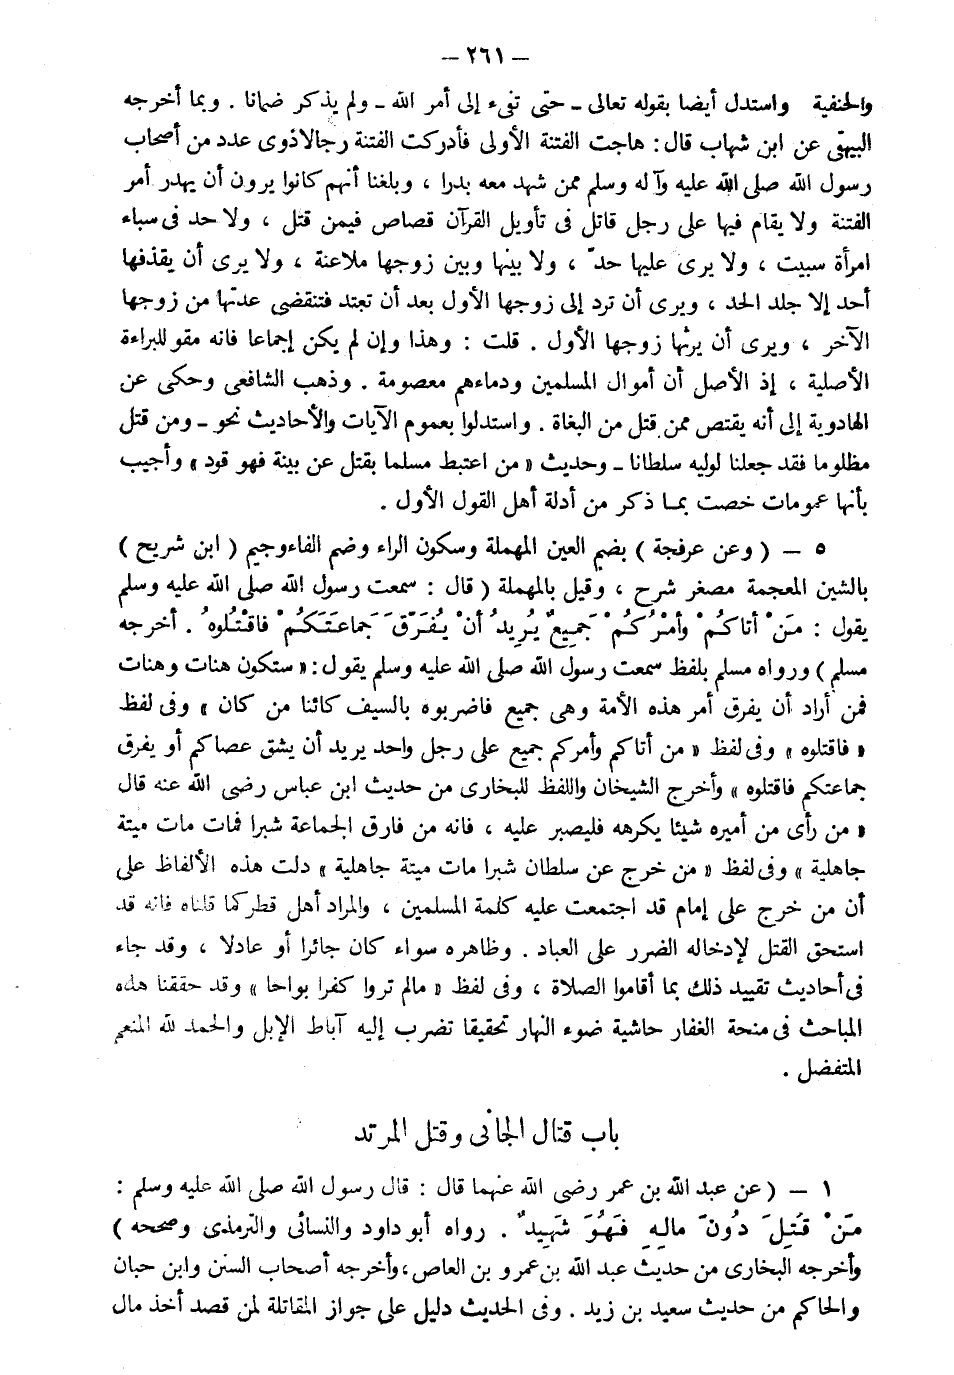 — ٢٦١ —
والحنفية واستدل أيضا بقوله تعالى ـ حتى تفىء إلى أمر الله ـ ولم يذكر ضمانا . وبما أخرجه
البيهقى عن ابن شهاب قال : هاجت الفتنة الأولى فأدركت الفتنة رجالا ذوى عدد من أصحاب
رسول الله صلى الله عليه وآله وسلم ممن شهد معه بدرا ، وبلغنا أنهم كانوا يرون أن يهدر أمر
الفتنة ولا يقام فيها على رجل قاتل فى تأويل القرآن قصاص فيمن قتل ، ولا حد فى سباء
امرأة سبيت ، ولا يرى عليها حدّ ، ولا بينها وبين زوجها ملاعنة ، ولا يرى أن يقذفها
أحد إلا جلد الحد ، ويرى أن ترد إلى زوجها الأول بعد أن تعتد فتنقضى عدتها من زوجها
الآخر ، ويرى أن يرثها زوجها الأول . قلت : وهذا وإن لم يكن إجماعا فانه مقو للبراءة
الأصلية ، إذ الأصل أن أموال المسلمين ودماءهم معصومة . وذهب الشافعى وحكى عن
الهادوية إلى أنه يقتص ممن قتل من البغاة . واستدلوا بعموم الآيات والأحاديث نحو ـ ومن قتل
مظلوما فقد جعلنا لوليه سلطانا ـ وحديث « من اعتبط مسلما بقتل عن بينة فهو قود » وأجيب
بأنها عمومات خصت بما ذكر من أدلة أهل القول الأول .
٥ — ( وعن عرفجة ) بضم العين المهملة وسكون الراء وضم الفاء وجيم ( ابن شريح )
بالشين المعجمة مصغر شرح ، وقيل بالمهملة ( قال : سمعت رسول الله صلى الله عليه وسلم
يقول : مَنْ أتاكُمْ وأمْرُكُمْ جَمِيعٌ يُرِيدُ أنْ يُفَرِّقَ جَماعَتَكُمْ فاقْتُلُوهُ . أخرجه
مسلم ) ورواه مسلم بلفظ سمعت رسول الله صلى الله عليه وسلم يقول : « ستكون هنات وهنات
فمن أراد أن يفرق أمر هذه الأمة وهى جميع فاضربوه بالسيف كائنا من كان » وفى لفظ
« فاقتلوه » وفى لفظ « من أتاكم وأمركم جميع على رجل واحد يريد أن يشق عصاكم أو يفرق
جماعتكم فاقتلوه » وأخرج الشيخان واللفظ للبخارى من حديث ابن عباس رضى الله عنه قال
« من رأى من أميره شيئا يكرهه فليصبر عليه ، فانه من فارق الجماعة شبرا فمات مات ميتة
جاهلية » وفى لفظ « من خرج عن سلطان شبرا مات ميتة جاهلية » دلت هذه الألفاظ على
أن من خرج على إمام قد اجتمعت عليه كلمة المسلمين ، والمراد أهل قطر كما قلناه فانه قد
استحق القتل لإدخاله الضرر على العباد . وظاهره سواء كان جائرا أو عادلا ، وقد جاء
فى أحاديث تقييد ذلك بما أقاموا الصلاة ، وفى لفظ « مالم تروا كفرا بواحا » وقد حققنا هذه
المباحث فى منحة الغفار حاشية ضوء النهار تحقيقا تضرب إليه آباط الإبل والحمد لله المنعم
المتفضل .
باب قتال الجانى وقتل المرتد
١ — ( عن عبد الله بن عمر رضى الله عنهما قال : قال رسول الله صلى الله عليه وسلم :
مَنْ قُتِلَ دُونَ مالِهِ فَهُوَ شَهِيدٌ . رواه أبو داود والنسائى والترمذى وصححه )
وأخرجه البخارى من حديث عبد الله بن عمرو بن العاص ، وأخرجه أصحاب السنن وابن حبان
والحاكم من حديث سعيد بن زيد . وفى الحديث دليل على جواز المقاتلة لمن قصد أخذ مال